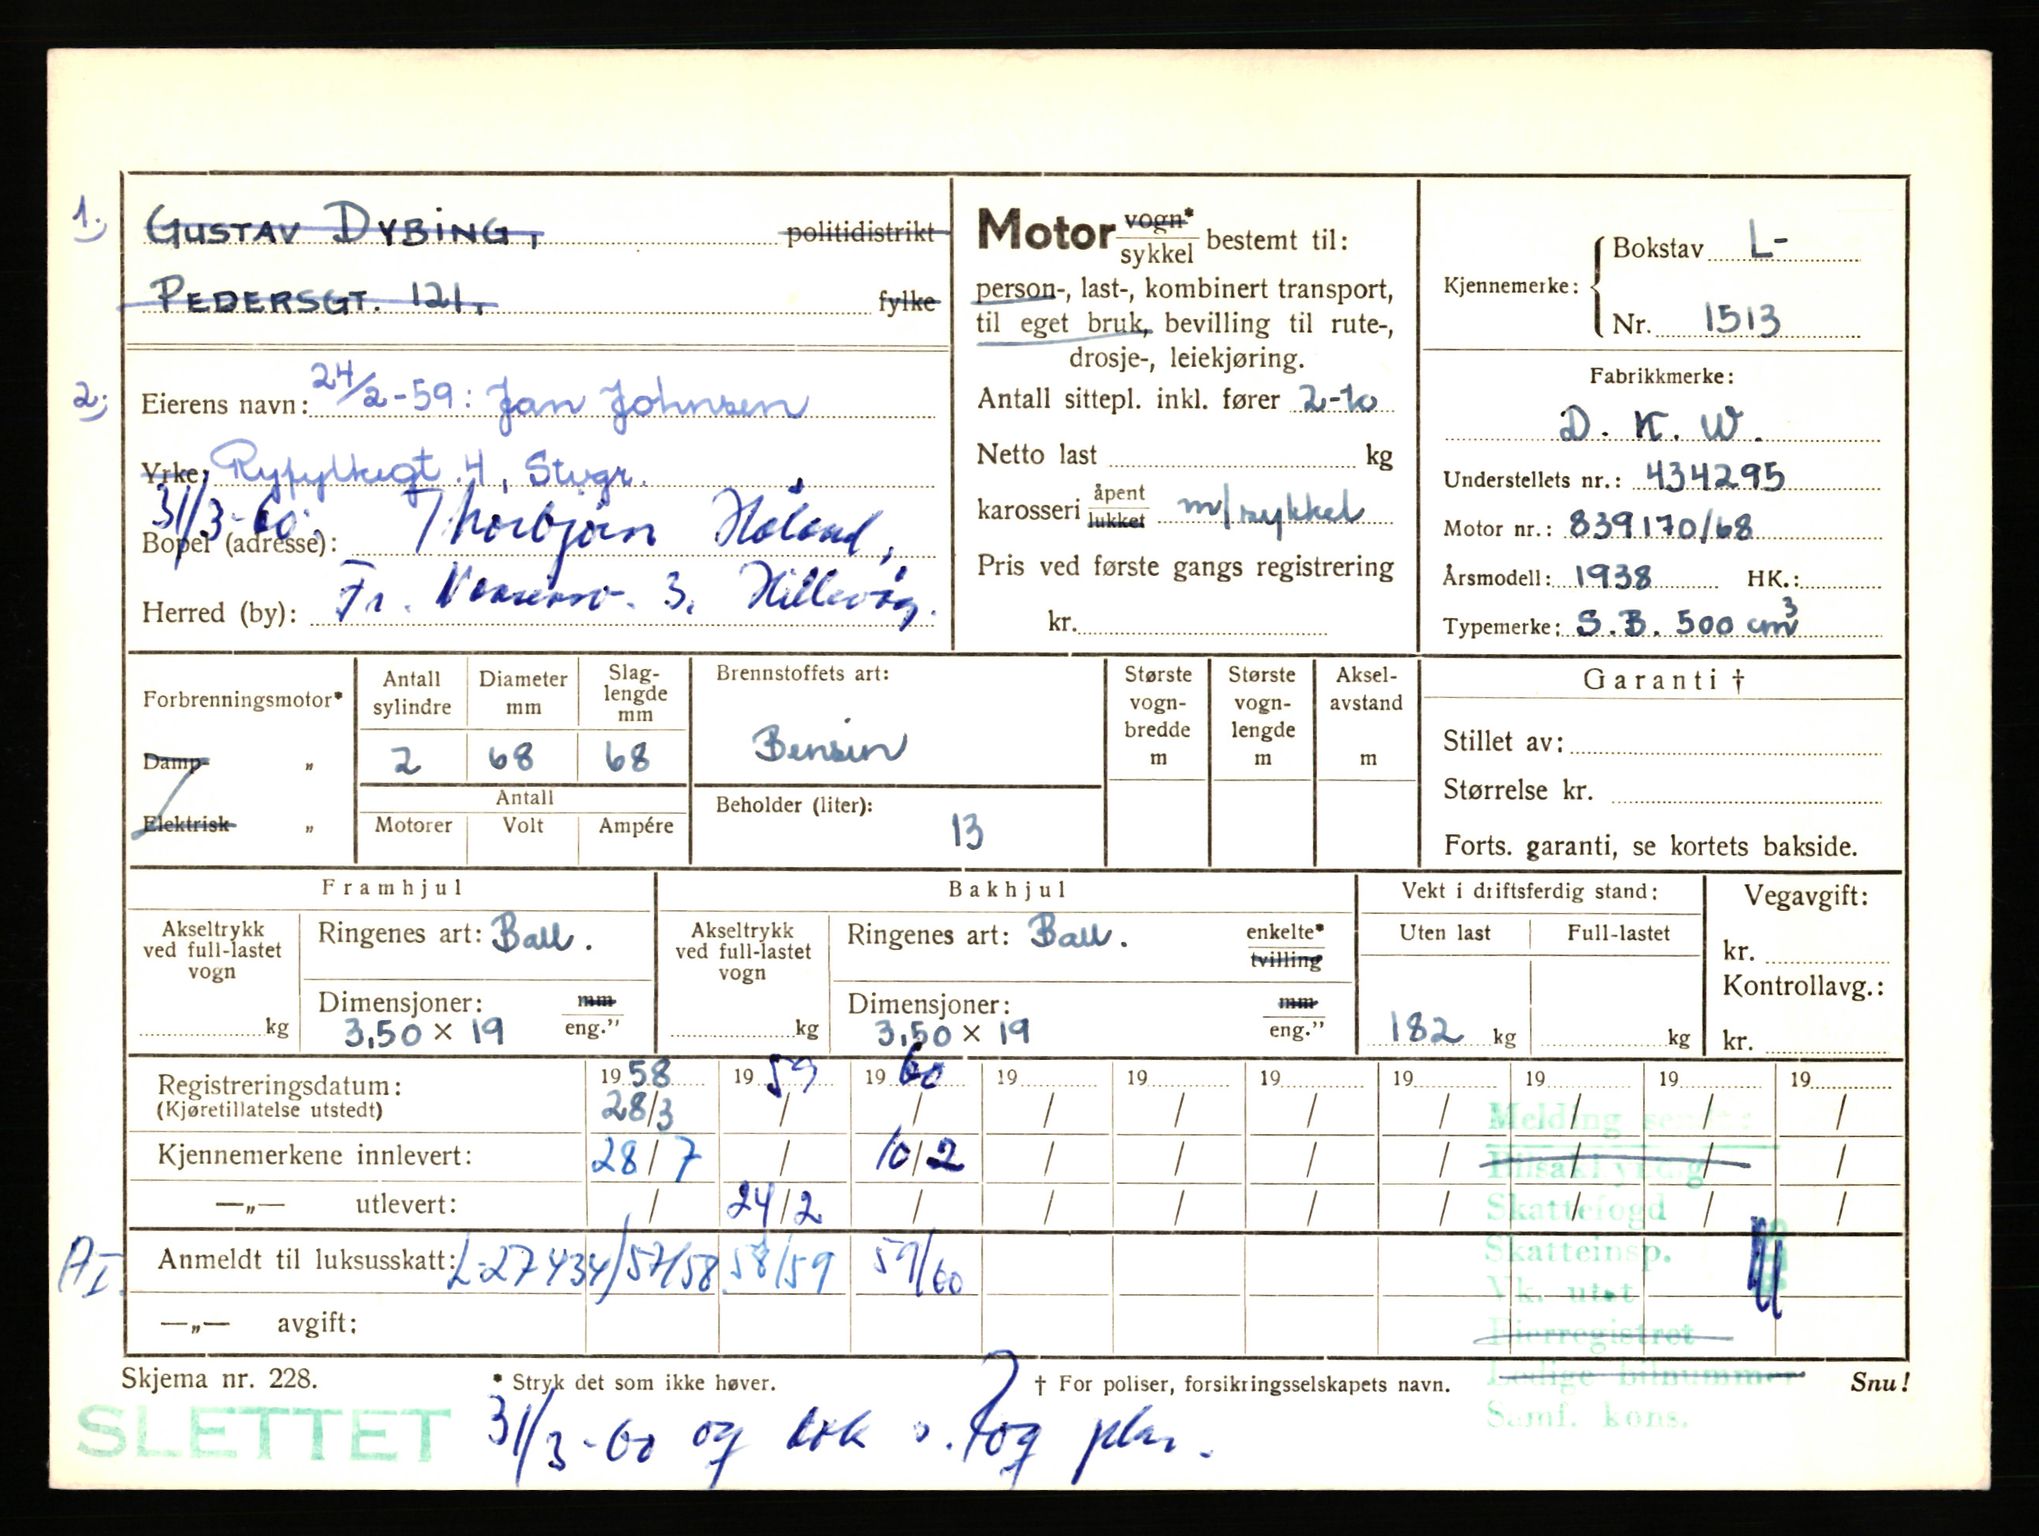 1.
GUSTAV DYBING, politidistrikt
PEDERSGT. 121, fylke
2.
Eierens navn: 24/2-59: Jan Johnsen
Yrke: Ryfylkegt. 4, Stvgr.
31/3-60: Thorbjørn Høland,
Bopel (adresse):
Herred (by): Fr. 3, Hillevåg.
Motor vogn* / sykkel bestemt til:
person-, last-, kombinert transport,
til eget bruk, bevilling til rute-,
drosje-, leiekjøring.
Antall sittepl. inkl. fører 2-to
Netto last kg
karosseri åpent / lukket m/sykkel
Pris ved første gangs registrering
kr.
Kjennemerke:
Bokstav L-
Nr. 1513
Fabrikkmerke:
D. K. W.
Understellets nr.: 434295
Motor nr.: 839170/68
Årsmodell: 1938 HK.:
Typemerke: S.B. 500 cm3
Forbrenningsmotor*
Damp „
Elektrisk „
Antall sylindre 2
Diameter mm 68
Slag-lengde mm 68
Antall
Motorer Volt Ampére
Brennstoffets art:
Bensin
Beholder (liter):
13
Største vogn-bredde m
Største vogn-lengde m
Aksel-avstand m
Garanti †
Stillet av:
Størrelse kr.
Forts. garanti, se kortets bakside.
Framhjul
Akseltrykk ved full-lastet vogn
kg
Ringenes art: Ball.
Dimensjoner: mm
3,50 × 19 eng.”
Bakhjul
Akseltrykk ved full-lastet vogn
kg
Ringenes art: Ball. enkelte* tvilling
Dimensjoner: mm
3,50 × 19 eng.”
Vekt i driftsferdig stand:
Uten last Full-lastet
182 kg kg
Vegavgift:
kr.
Kontrollavg.:
kr.
Registreringsdatum: 1958 1959 1960 19 19 19 19 19 19 19
(Kjøretillatelse utstedt) 28/3 / / / / / / / / /
Kjennemerkene innlevert: 28/7 / 10/2 / / / / / / /
—„— utlevert: / 24/2 / / / / / / / /
Anmeldt til luksusskatt: L-27434/57/58 58/59 59/60
—„— avgift:
Melding sendt:
Skattefogd
Skatteinsp.
Vk. utst
Eierregistret
Ledige bilnummer
Samf. kons.
Skjema nr. 228. * Stryk det som ikke høver. † For poliser, forsikringsselskapets navn. Snu!
SLETTET 31/3-60 og